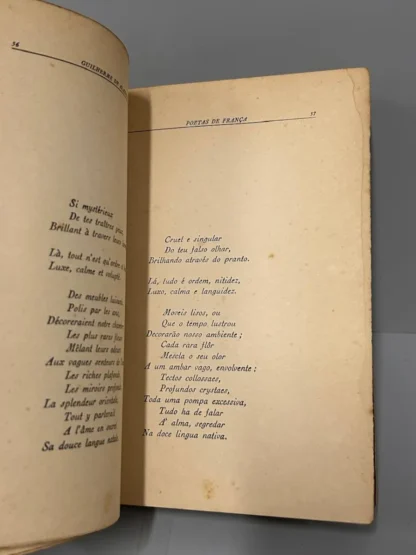 56
GUILHERME DE
Si mystérieux
De tes traîtres yeux,
Brillant à travers leurs
Là, tout n'est qu'ordre et
Luxe, calme et volupté.
Des meubles luisants,
Polis par les ans,
Décoreraient notre chambre
Les plus rares fleurs
Mêlant leurs odeurs
Aux vagues senteurs de
Les riches plafonds
Les miroirs profonds
La splendeur orientale,
Tout y parlerait
A l'âme en secret
Sa douce langue natale.
POETAS DE FRANÇA
57
Cruel e singular
Do teu falso olhar,
Brilhando através do pranto.
Lá, tudo é ordem, nitidez,
Luxo, calma e languidez.
Moveis lisos, ou
Que o tempo lustrou
Decorarão nosso ambiente;
Cada rara flôr
Mescla o seu olor
A um ambar vago, envolvente;
Tectos collossaes,
Profundos crystaes,
Toda uma pompa excessiva,
Tudo ha de falar
A' alma, segredar
Na doce lingua nativa.